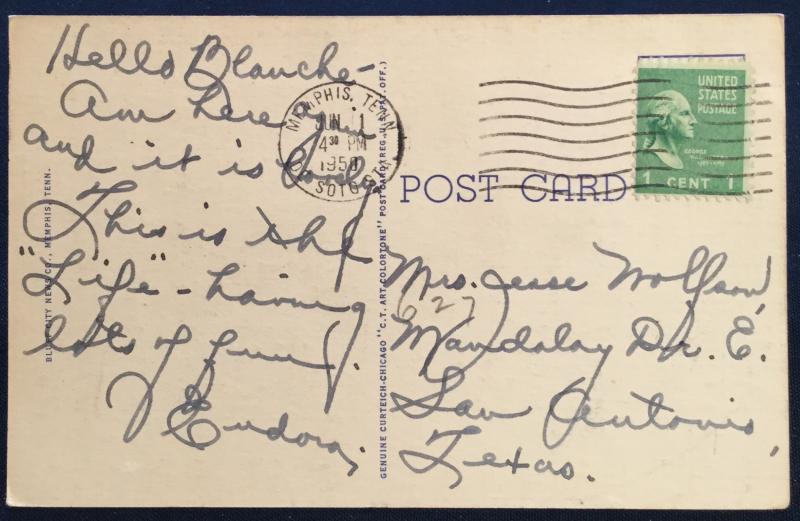 Hello Blanche -
Am here
and it is
This is the
"Life" - having
lots of fun.
Eudora,
BLUFF CITY NEWS CO., MEMPHIS, TENN.
GENUINE CURTEICH-CHICAGO "C.T. ART-COLORTONE" POST CARD (REG. U.S. PAT. OFF.)
MEMPHIS, TENN
JUN 1
4 30 PM
1950
SOTO STA
UNITED
STATES
POSTAGE
GEORGE
1 CENT 1
POST CARD
Mrs. Jesse Wolfson,
627
Mandalay Dr. E.
San Antonio,
Texas.